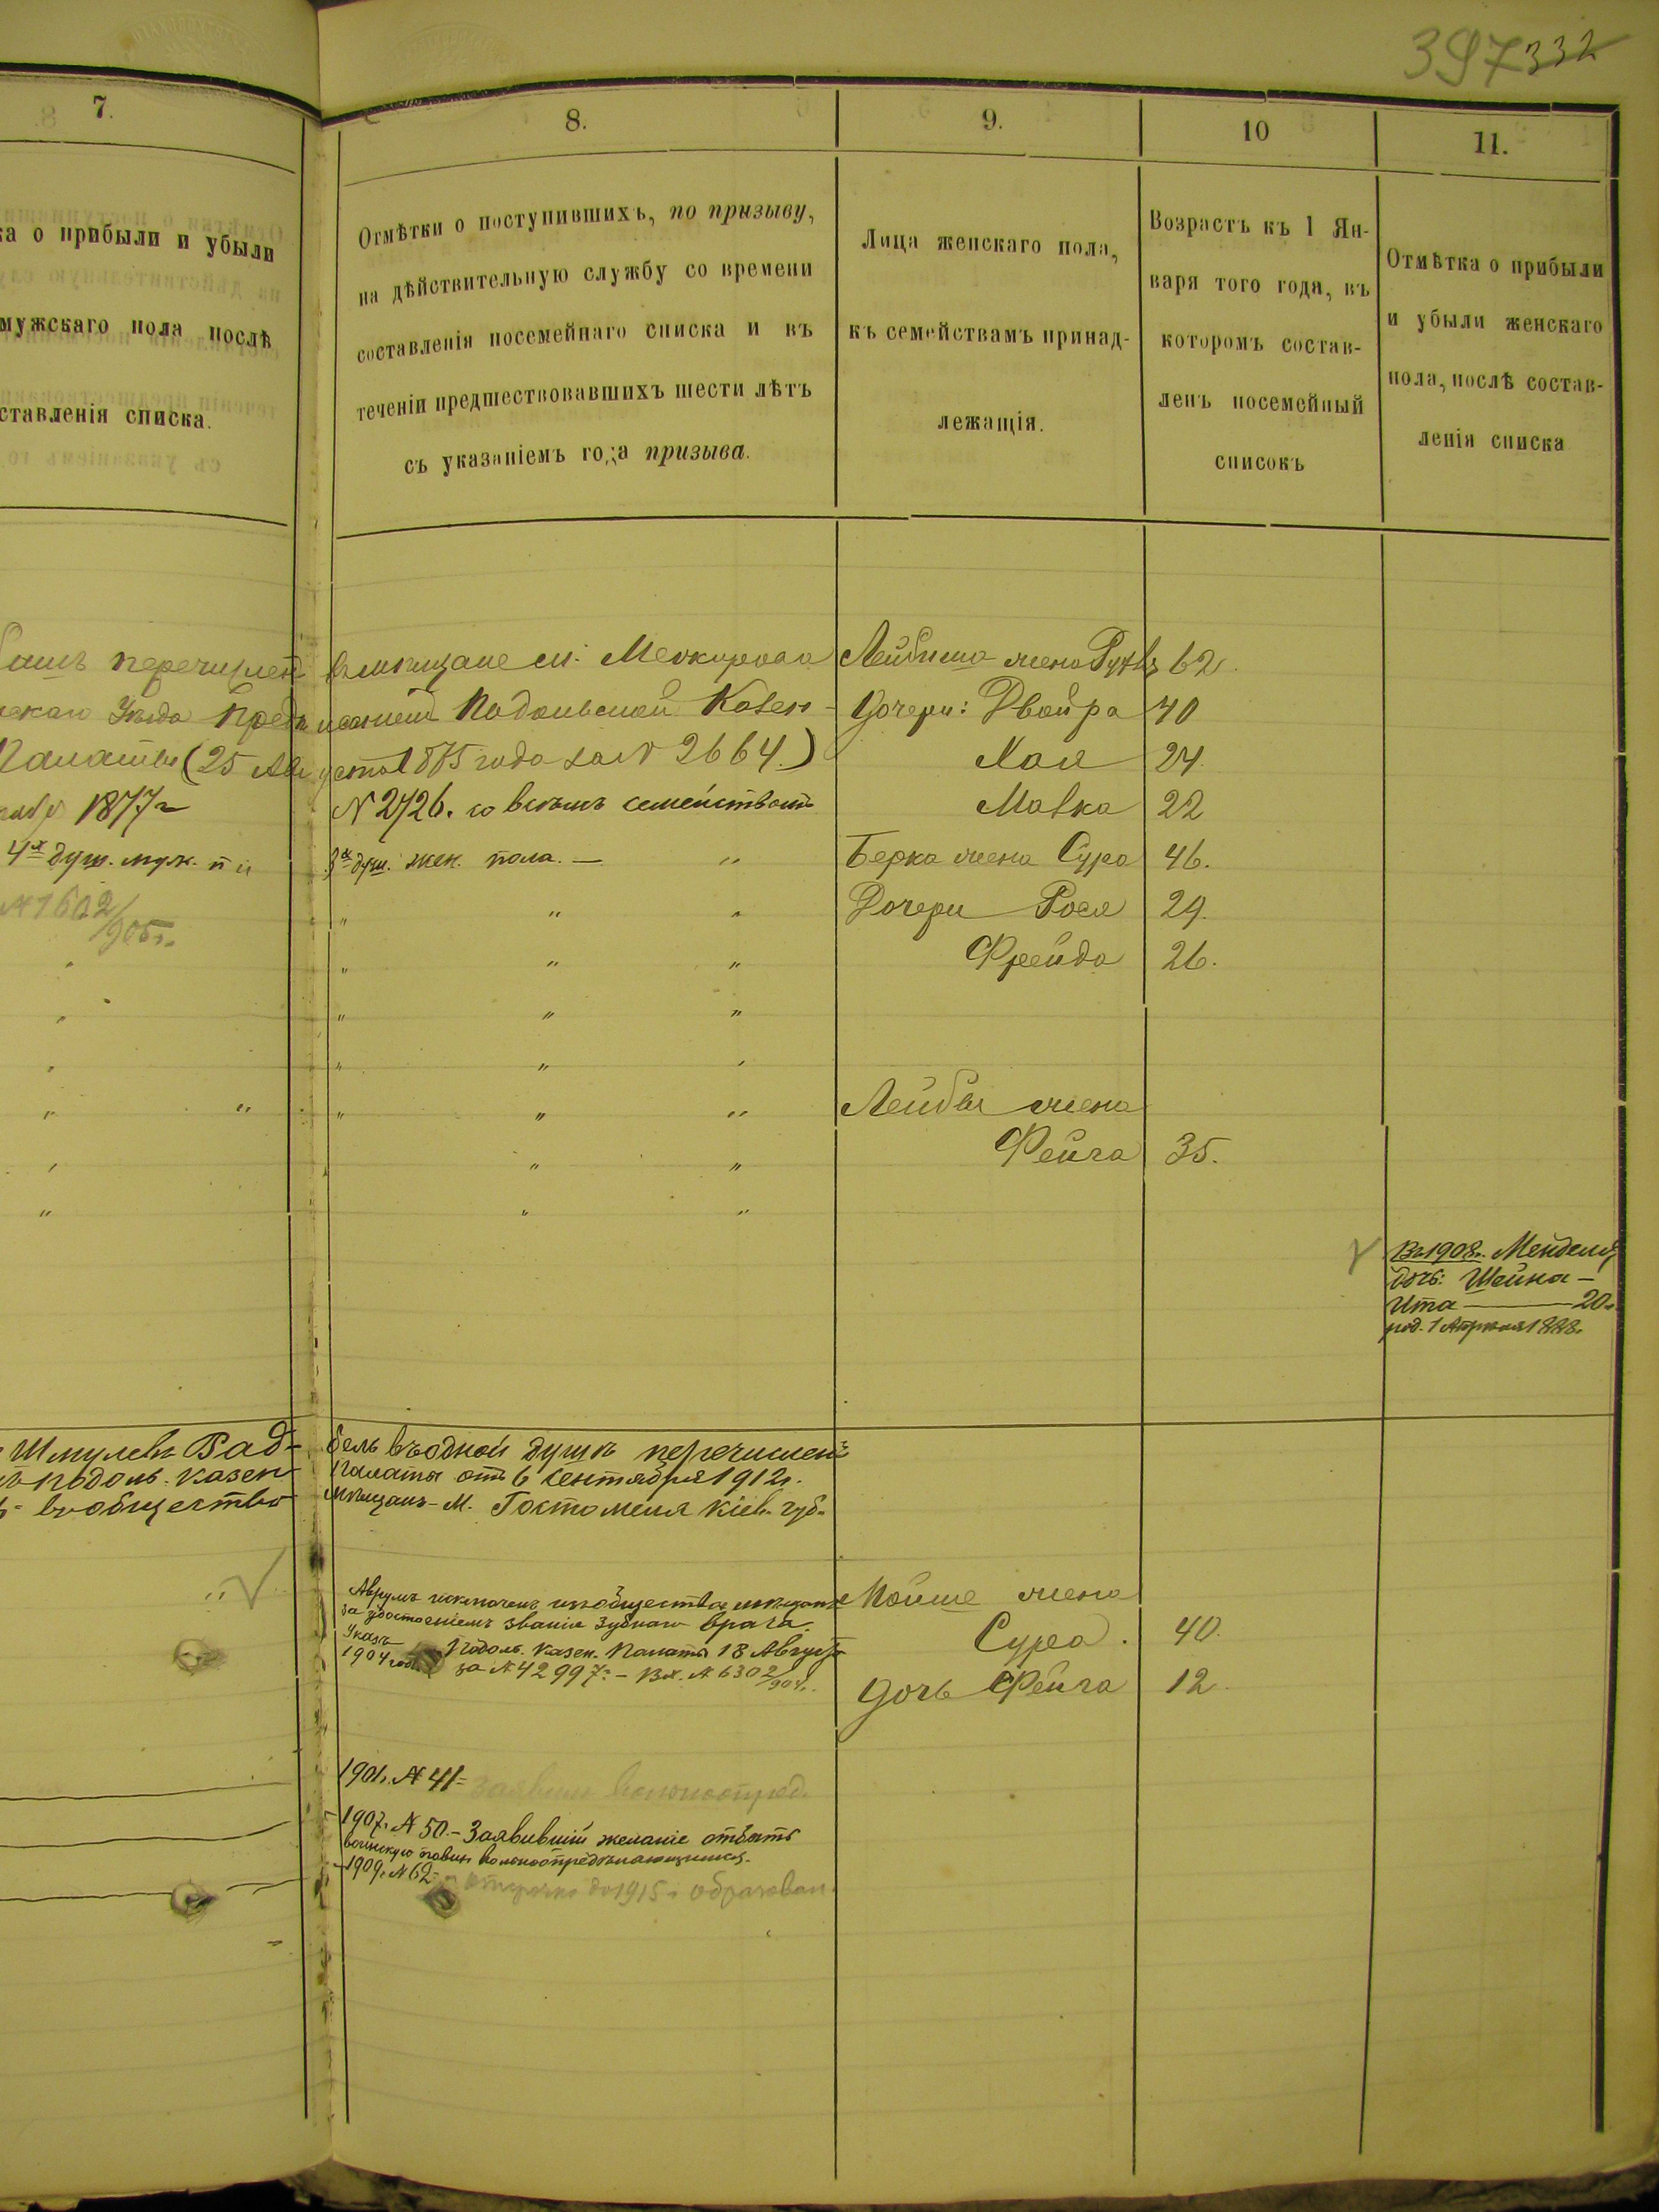 397 332
7.
8.
9.
10
11.
ка о прибыли и убыли
мужскаго пола послѣ
ставленія списка.
Отмѣтки о поступившихъ, по призыву,
на дѣйствительную службу со времени
составленія посемейнаго списка и въ
теченіи предшествовавшихъ шести лѣтъ
съ указаніемъ года призыва.
Лица женскаго пола,
къ семействамъ принад-
лежащія.
Возрастъ къ 1 Ян-
варя того года, въ
которомъ состав-
ленъ посемейный
списокъ
Отмѣтка о прибыли
и убыли женскаго
пола, послѣ состав-
ленія списка
перечислен въ мѣщане м.
Уѣзда Предписанiем Подольской Казен-
Палаты (25 Августа 1875 года за № 2664.)
1877 г № 2726. со всѣмъ семействомъ
4х душ. муж. п и 3х душ. жен. пола. — "
№ 1602/905 г.
Лейбиша жена 62.
Дочери: Двойра 40
Хая 24.
Малка 22
Берка жена Сура 46.
Дочери Рося 29.
Фрейда 26.
Лейбы жена
Фейга 35.
Въ 1908 г. Менделя
дочь: Шейна-
Ита — 20 г.
род. 1 Апрѣля 1888 г.
Шмулевъ Рад- бель въ одной душѣ перечисленъ
Подоль. Казен Палаты отъ 6 Сентября 1912 г.
въ общество Мѣщанъ - М. Гостомеля Кіев. губ.
Аврумъ исключенъ изъ общества мѣщанъ
за удостоеніемъ званія зубнаго врача.
Указъ Подоль. Казен. Палаты 18 Августа
1904 года за № 42997. - Вх. № 6302/904 г.
Мойше жена
Сура. 40.
Дочь Фейга 12
1901 г. № 41 = заявилъ вольноопред.
1907 г. № 50. - Заявившій желаніе отбыть
воинскую повин. вольноопредѣляющимся.
1909 г. № 62 - отсрочка до 1915 г. образован.